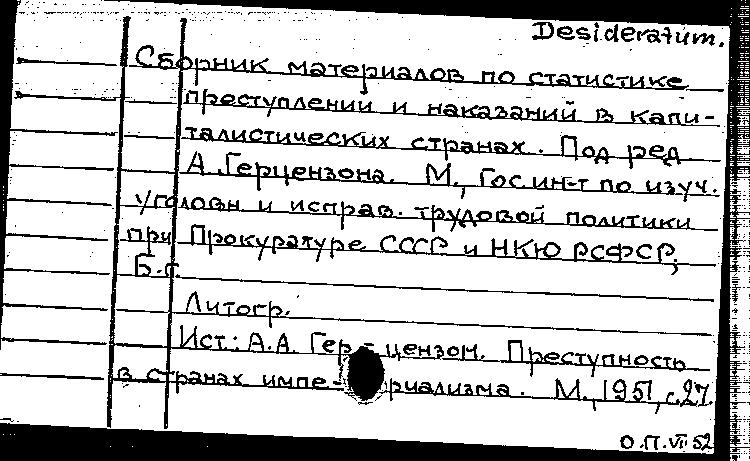 Desideratum.
Сборник материалов по статистике
преступлений и наказаний в капи-
талистических странах. Под ред.
А. Герцензона. М., Гос. ин-т по изуч.
уголовн и исправ. трудовой политики
при Прокуратуре СССР и НКЮ РСФСР,
Б.г.
Литогр.
Ист.: А.А. Гер-цензон. Преступность
в странах импе-риализма. М., 1951, с.27.
О.П. VII 52